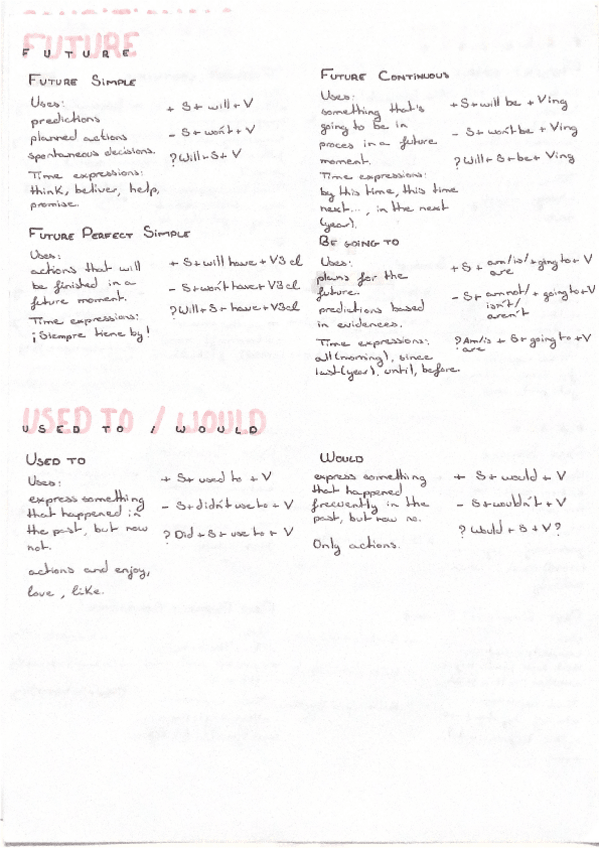 FUTURE
FUTURE SIMPLE
Uses:
predictions
planned actions
spontaneous decisions.
Time expressions:
think, beliver, help,
promise.
+ S + will + V
- S + won't + V
? Will + S + V
FUTURE CONTINUOUS
Uses:
something that's
going to be in
proces in a future
moment.
Time expressions:
by this time, this time
next..., in the next
(year).
+ S + will be + Ving
- S + won't be + Ving
? Will + S + be + Ving
FUTURE PERFECT SIMPLE
Uses:
actions that will
be finished in a
future moment.
Time expressions:
¡Siempre tiene by!
+ S + will have + V3 cl
- S + won't have + V3 cl
? Will + S + have + V3 cl
BE GOING TO
Uses:
plans for the
future.
predictions based
in evidences.
Time expressions:
all (morning), since
last (year), until, before.
+ S + am/is/ + going to + V
are
- S + am not/ + going to + V
isn't/
aren't
? Am/is + S + going to + V
are
USED TO / WOULD
USED TO
Uses:
express something
that happened in
the past, but now
not.
actions and enjoy,
love, like.
+ S + used to + V
- S + didn't use to + V
? Did + S + use to + V
WOULD
express something
that happened
frecuently in the
past, but now no.
Only actions.
+ S + would + V
- S + wouldn't + V
? Would + S + V?